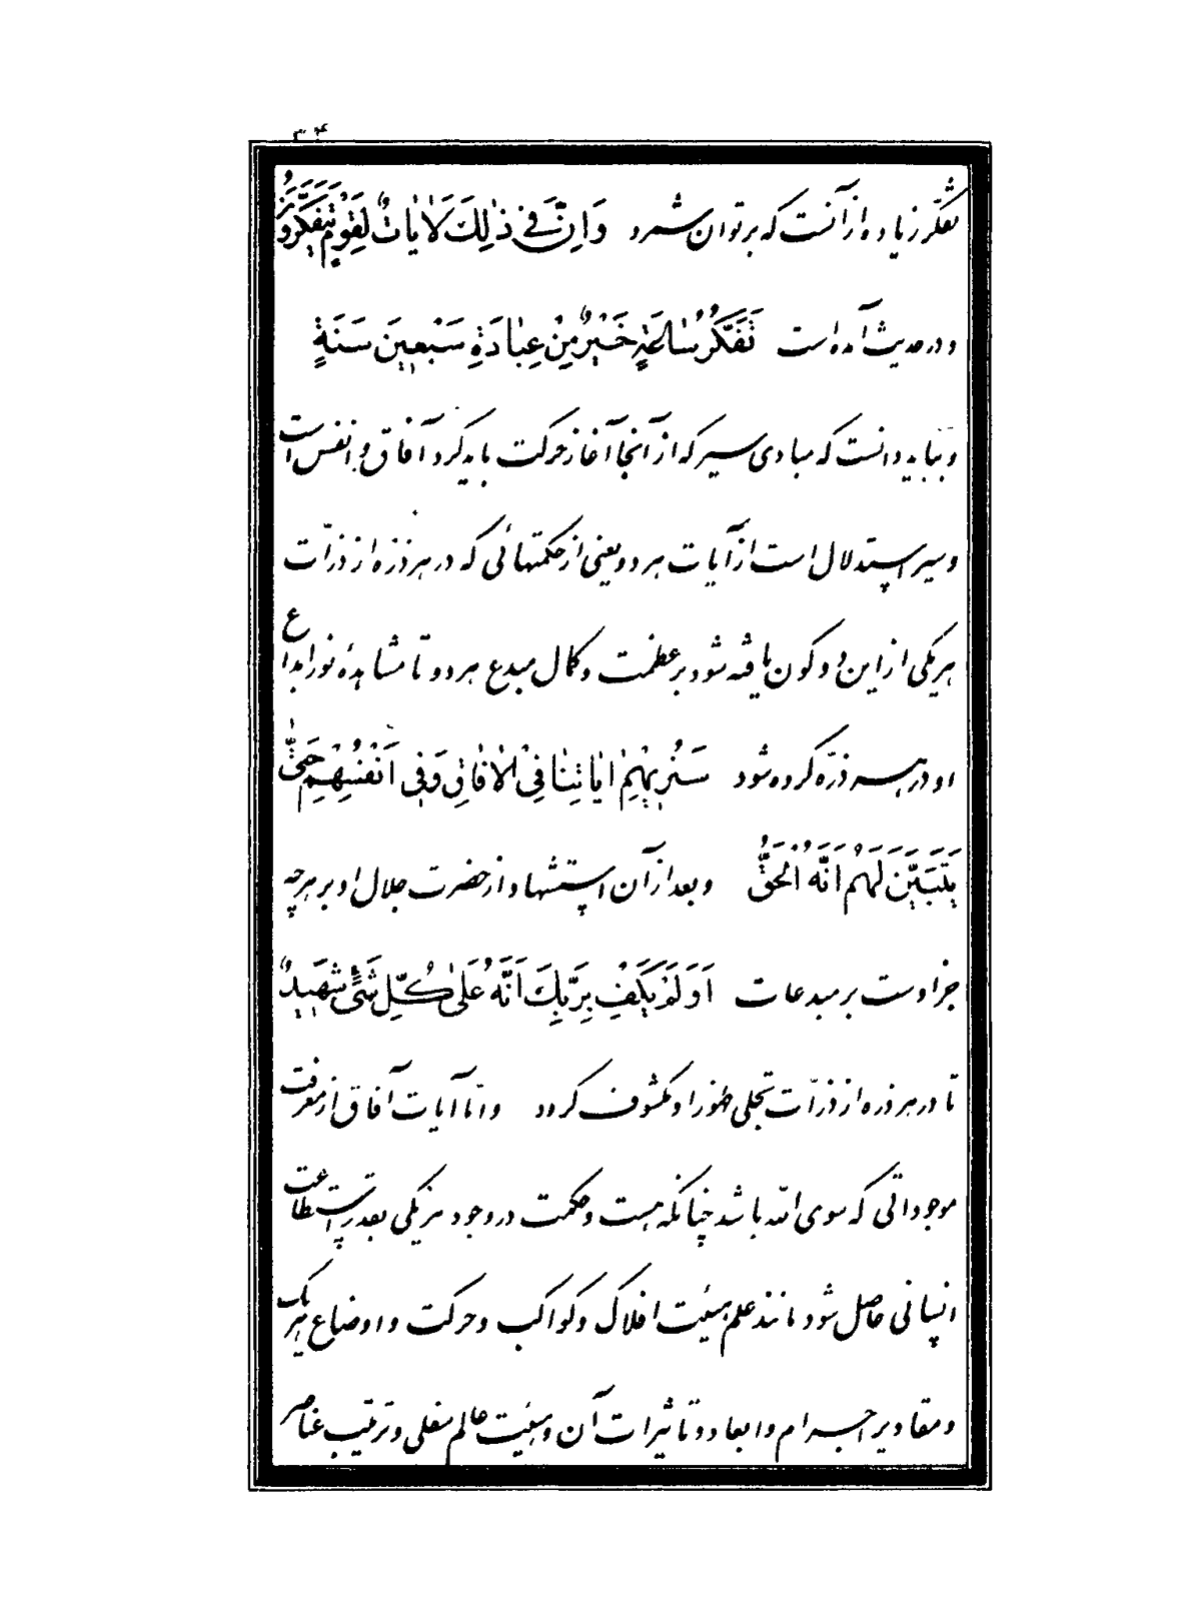 ۳۴
تفکّر زیاده از آنست که بر توان شمرد وَاِنَّ فی ذٰلِكَ لَاٰیٰاتٌ لِقَوْمٍ یَتَفَکَّرُونَ
و در حدیث آمده است تَفَکُّرُ سٰاعَةٍ خَیْرٌ مِنْ عِبٰادَةِ سَبْعینَ سَنَةٍ
و بباید دانست که مبادی سیر که از آنجا آغاز حرکت باید کرد آفاق و انفس است
و سیر استدلال است از آیات هر دو یعنی از حکمتهائی که در هر ذره از ذرّات
هر یکی از این دو کون یافته شود بر عظمت و کمال مبدع هر دو تا مشاهدهٔ نور ابداع
او در همه ذرّه کرده شود سَنُریهِمْ اٰیٰاتِنٰا فِی الْاٰفٰاقِ وَفی اَنْفُسِهِمْ حَتّٰی
یَتَبَیَّنَ لَهُمْ اَنَّهُ الْحَقُّ و بعد از آن استشهاد از حضرت جلال او بر هر چه
جز اوست بر مبدعات اَوَلَمْ یَکْفِ بِرَبِّكَ اَنَّهُ عَلیٰ کُلِّ شَیْءٍ شَهیدٌ
تا در هر ذره از ذرّات تجلی ظهور او مکشوف گردد و امّا آیات آفاق از معرفت
موجوداتی که سوی اللّه باشد چنانکه هست و حکمت در وجود هر یکی بقدر استطاعت
انسانی حاصل شود مانند علم هیئت افلاک و کواکب و حرکت و اوضاع هر یک
و مقادیر اجرام و ابعاد و تاثیرات آن و هیئت عالم سفلی و ترتیب عناصر